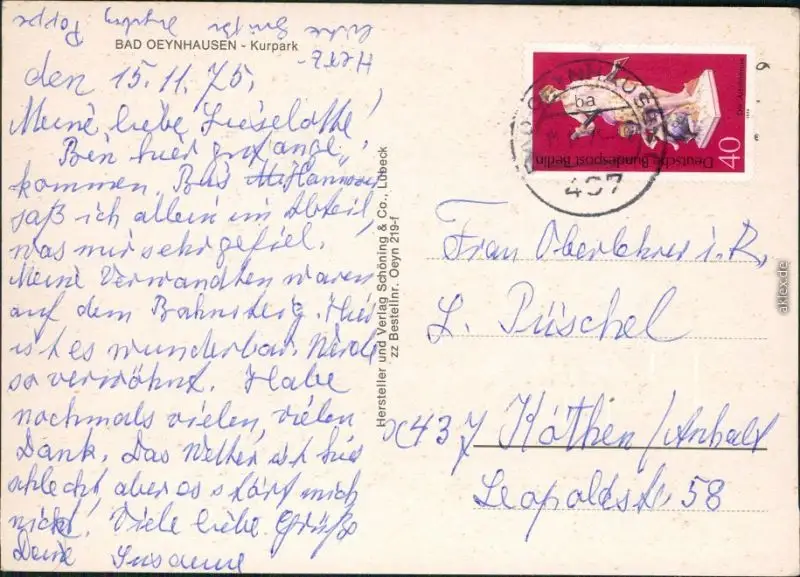 BAD OEYNHAUSEN - Kurpark
den 15. 11. 75.
Meine liebe Lieselotte!
Bin hier gut ange-
kommen. Bis Hannover
saß ich allein im Abteil,
was mir sehr gefiel.
Meine Verwandten waren
auf dem Bahnsteig. Hier
ist es wunderbar. Werde
so verwöhnt. Habe
nochmals vielen, vielen
Dank. Das Wetter ist hier
schlecht, aber es stört mich
nicht. Viele liebe Grüße
Deine Susanne
Herz-
liche Grüße
Hersteller und Verlag Schöning & Co., Lübeck
zz Bestellnr. Oeyn 219-f
40
Deutsche Bundespost Berlin
BAD OEYNHAUSEN
ba
497
Frau Oberlehrer i. R.
L. Püschel
x437 Köthen/Anhalt
Leopoldstr. 58
aklex.de